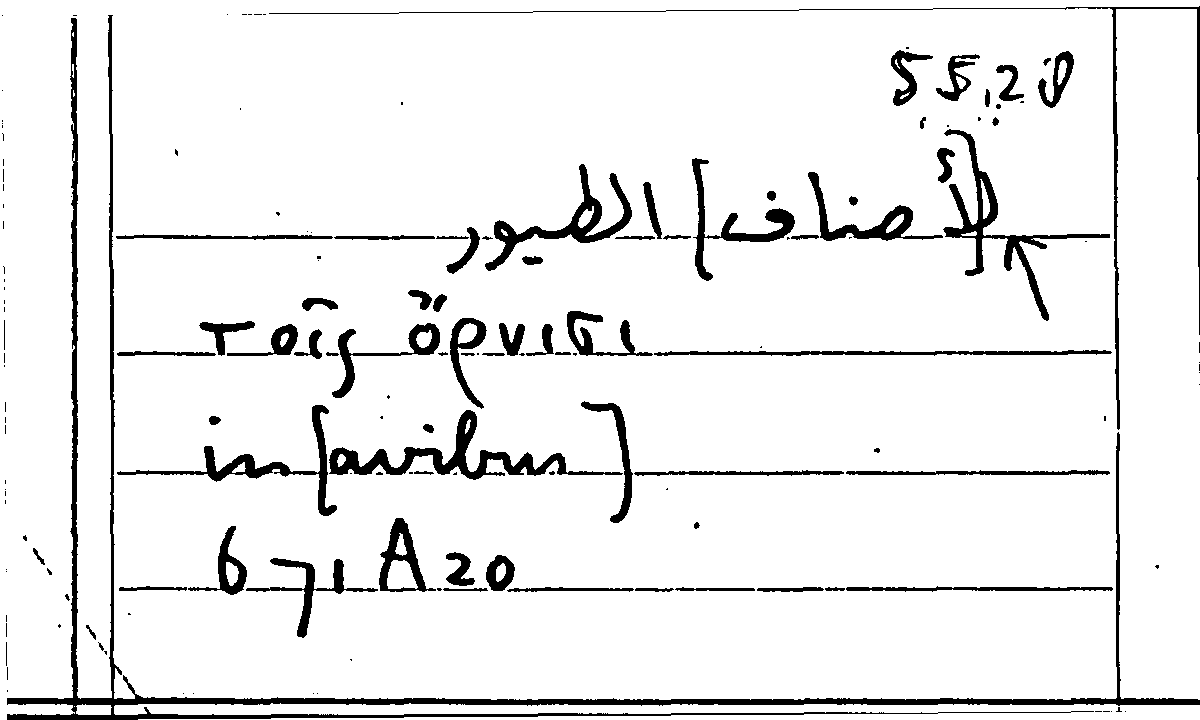 55,20
[لأ]صناف [الطيور
τοῖς ὄρνισι
in [avibus]
671 A 20